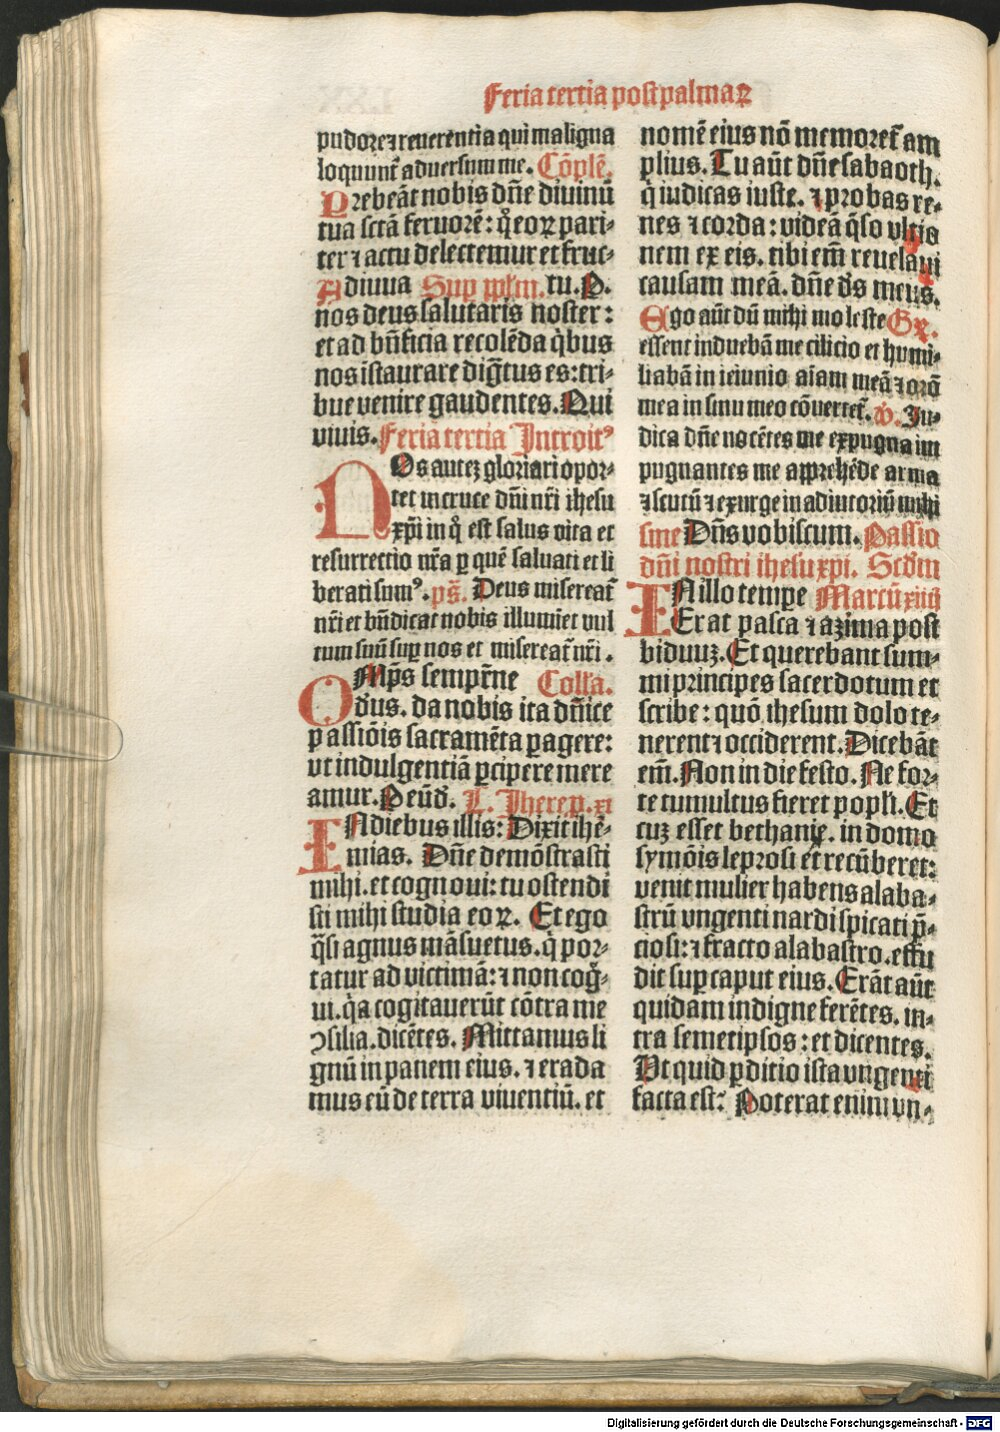 Feria tertia post palmaꝝ
pudore ⁊ reuerentia qui maligna
loquunt̃ aduersum me. Cõplẽ.
Prebeãt nobis dñe diuinũ
tua sctã feruorẽ: q̃ eoꝝ pari-
ter ⁊ actu delectemur et fruc-
tu. P. Sup pplm. Adiuua
nos deus salutaris noster:
et ad bñficia recolẽda q̃bus
nos ĩstaurare dig̃tus es: tri-
bue venire gaudentes. Qui
viuis. Feria tertia Introit⁹
NOs autẽ gloriari opor-
tet in cruce dñi nr̃i ihesu
xp̃i in q̃ est salus vita et
resurrectio nr̃a ꝑ quẽ saluati et li
berati sum⁹. ps̃. Deus misereat̃
nr̃i et bñdicat nobis illumiet vul
tum suũ suꝑ nos et misereat̃ nr̃i.
OMp̃s sempr̃ne Colla.
d̃us. da nobis ita dñice
passiõis sacramẽta ꝑagere:
vt indulgentiã ꝑcipere mere
amur. P eũd̃. L. Iherep. xi
IN diebus illis: Dixit ihẽ-
mias. Dñe demõstrasti
mihi. et cognoui: tu ostendi
sti mihi studia eoꝝ. Et ego
q̃si agnus mãsuetus. q̃ por-
tatur ad victimã: ⁊ non cog̃-
ui. q̃a cogitauerũt cõtra me
ↄsilia. dicẽtes. Mittamus li
gnũ in panem eius. ⁊ erada
mus eũ de terra viuentiũ. et
nomẽ eius nõ memoret̃ am
plius. Tu aũt dñe sabaoth.
q̃ iudicas iuste. ⁊ probas re-
nes ⁊ corda: videã q̃so vltio
nem ex eis. tibi em̃ reuelaui
causam meã. dñe d̃s meus.
Ego aũt dũ mihi moleste Gr̃.
essent induebã me cilicio et humi-
liabã in ieiunio aĩam meã ⁊ orõ
mea in sinu meo cõuertet̃. v̉. Iu-
dica dñe nocẽtes me expugna im
pugnantes me apprehẽde arma
⁊ scutũ ⁊ exurge in adiutoriũ mihi
sine Dñs vobiscum. Passio
dñi nostri ihesu xpi. Scd̃m
IN illo tempe Marcũ xiiij
Erat pasca ⁊ azima post
biduuꝫ. Et querebant sum-
mi principes sacerdotum et
scribe: quõ ihesum dolo te-
nerent ⁊ occiderent. Dicebãt
em̃. Non in die festo. Ne for-
te tumultus fieret popl̃i. Et
cuꝫ esset bethanie. in domo
symõis leprosi et recũberet:
venit mulier habens alaba-
strũ vngenti nardi spicati p̃-
ciosi: ⁊ fracto alabastro. effu
dit suꝑ caput eius. Erãt aũt
quidam indigne ferẽtes. in-
tra semetipsos: et dicentes.
Vt quid ꝑditio ista vngenti
facta est? Poterat enim vn-
Digitalisierung gefördert durch die Deutsche Forschungsgemeinschaft - DFG